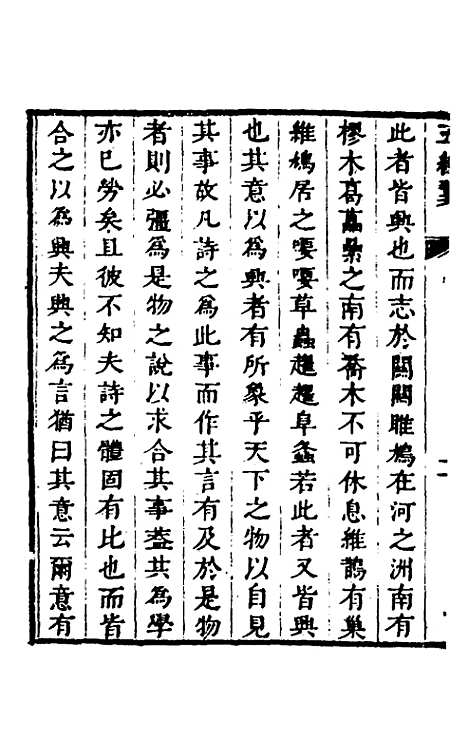 此者皆興也而志於關關雎鳩在河之洲南有
樛木葛藟纍之南有喬木不可休息維鵲有巢
維鳩居之喓喓草蟲趯趯阜螽若此者又皆興
也其意以為興者有所象乎天下之物以自見
其事故凡詩之為此事而作其言有及於是物
者則必彊為是物之說以求合其事葢其為學
亦已勞矣且彼不知夫詩之體固有比也而皆
合之以為興夫興之為言猶曰其意云爾意有